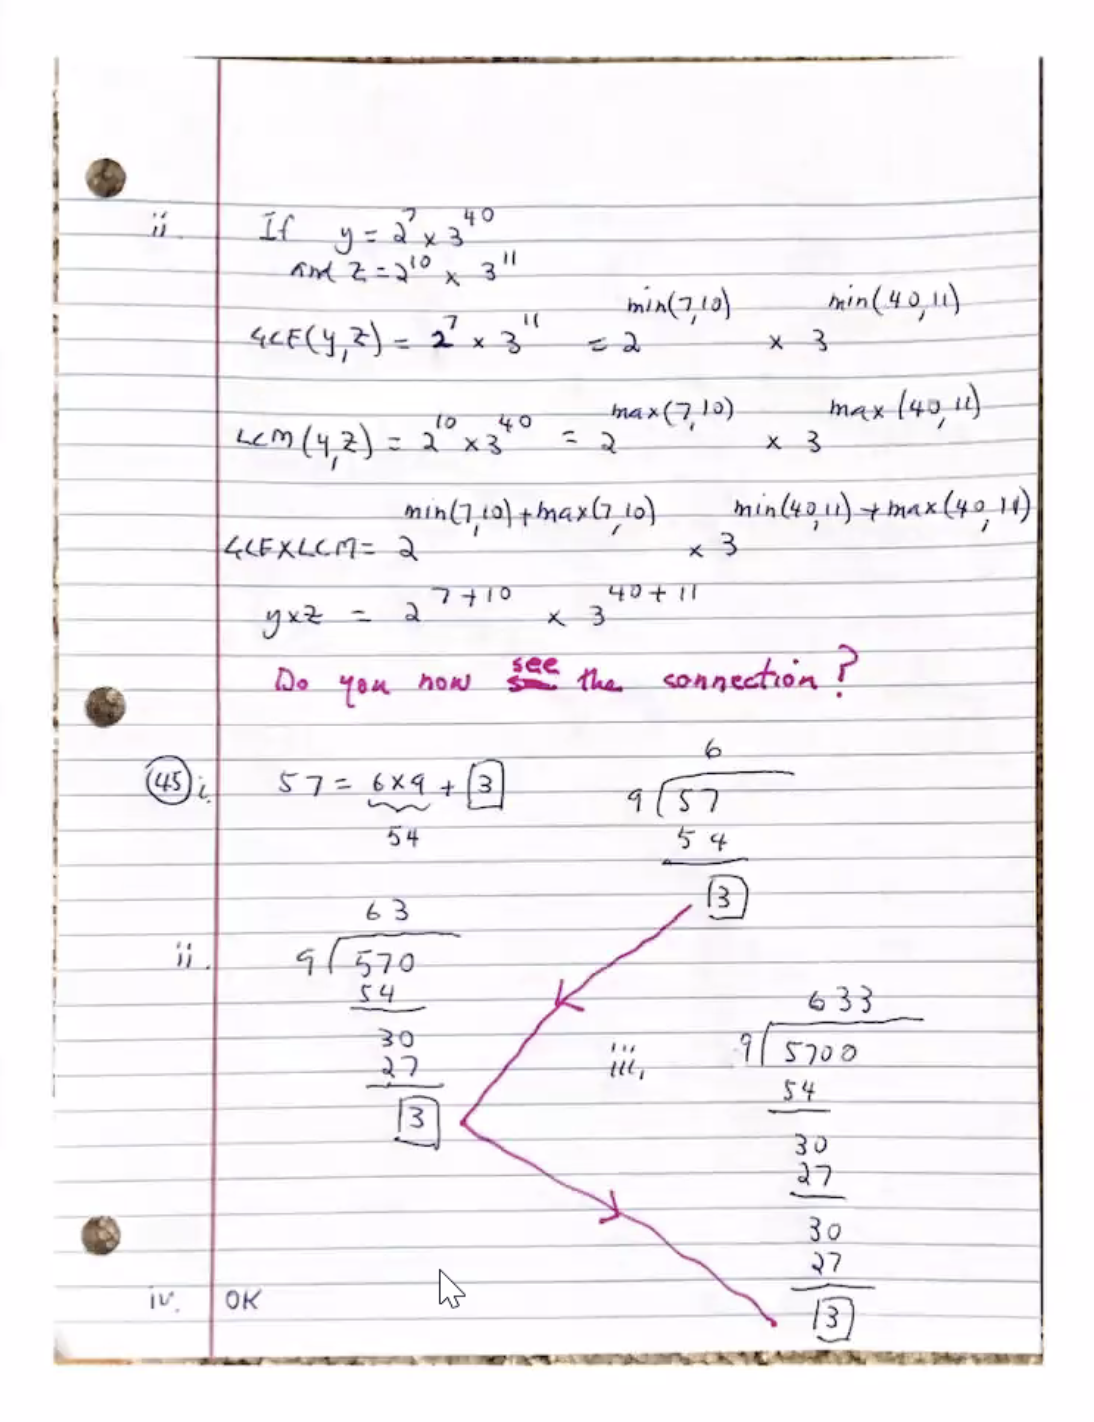 ii. If y = 2^7 x 3^40
and z = 2^10 x 3^11
GCF(y,z) = 2^7 x 3^11 = 2^min(7,10) x 3^min(40,11)
LCM(y,z) = 2^10 x 3^40 = 2^max(7,10) x 3^max(40,11)
GCFxLCM = 2^min(7,10)+max(7,10) x 3^min(40,11)+max(40,11)
yxz = 2^7+10 x 3^40+11
Do you now see the connection?
45 i. 57 = 6x9 + 3
54
6
9 57
54
3
ii. 63
9 570
54
30
27
3
iii. 633
9 5700
54
30
27
30
27
3
iv. OK